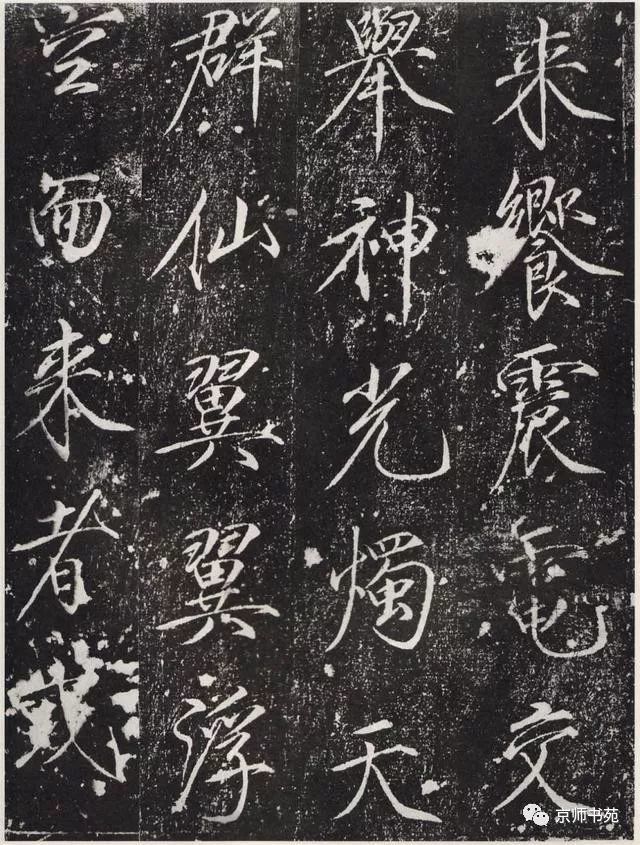 来饗震電交
舉神光燭天
群仙翼翼浮
空而来者或
京师书苑